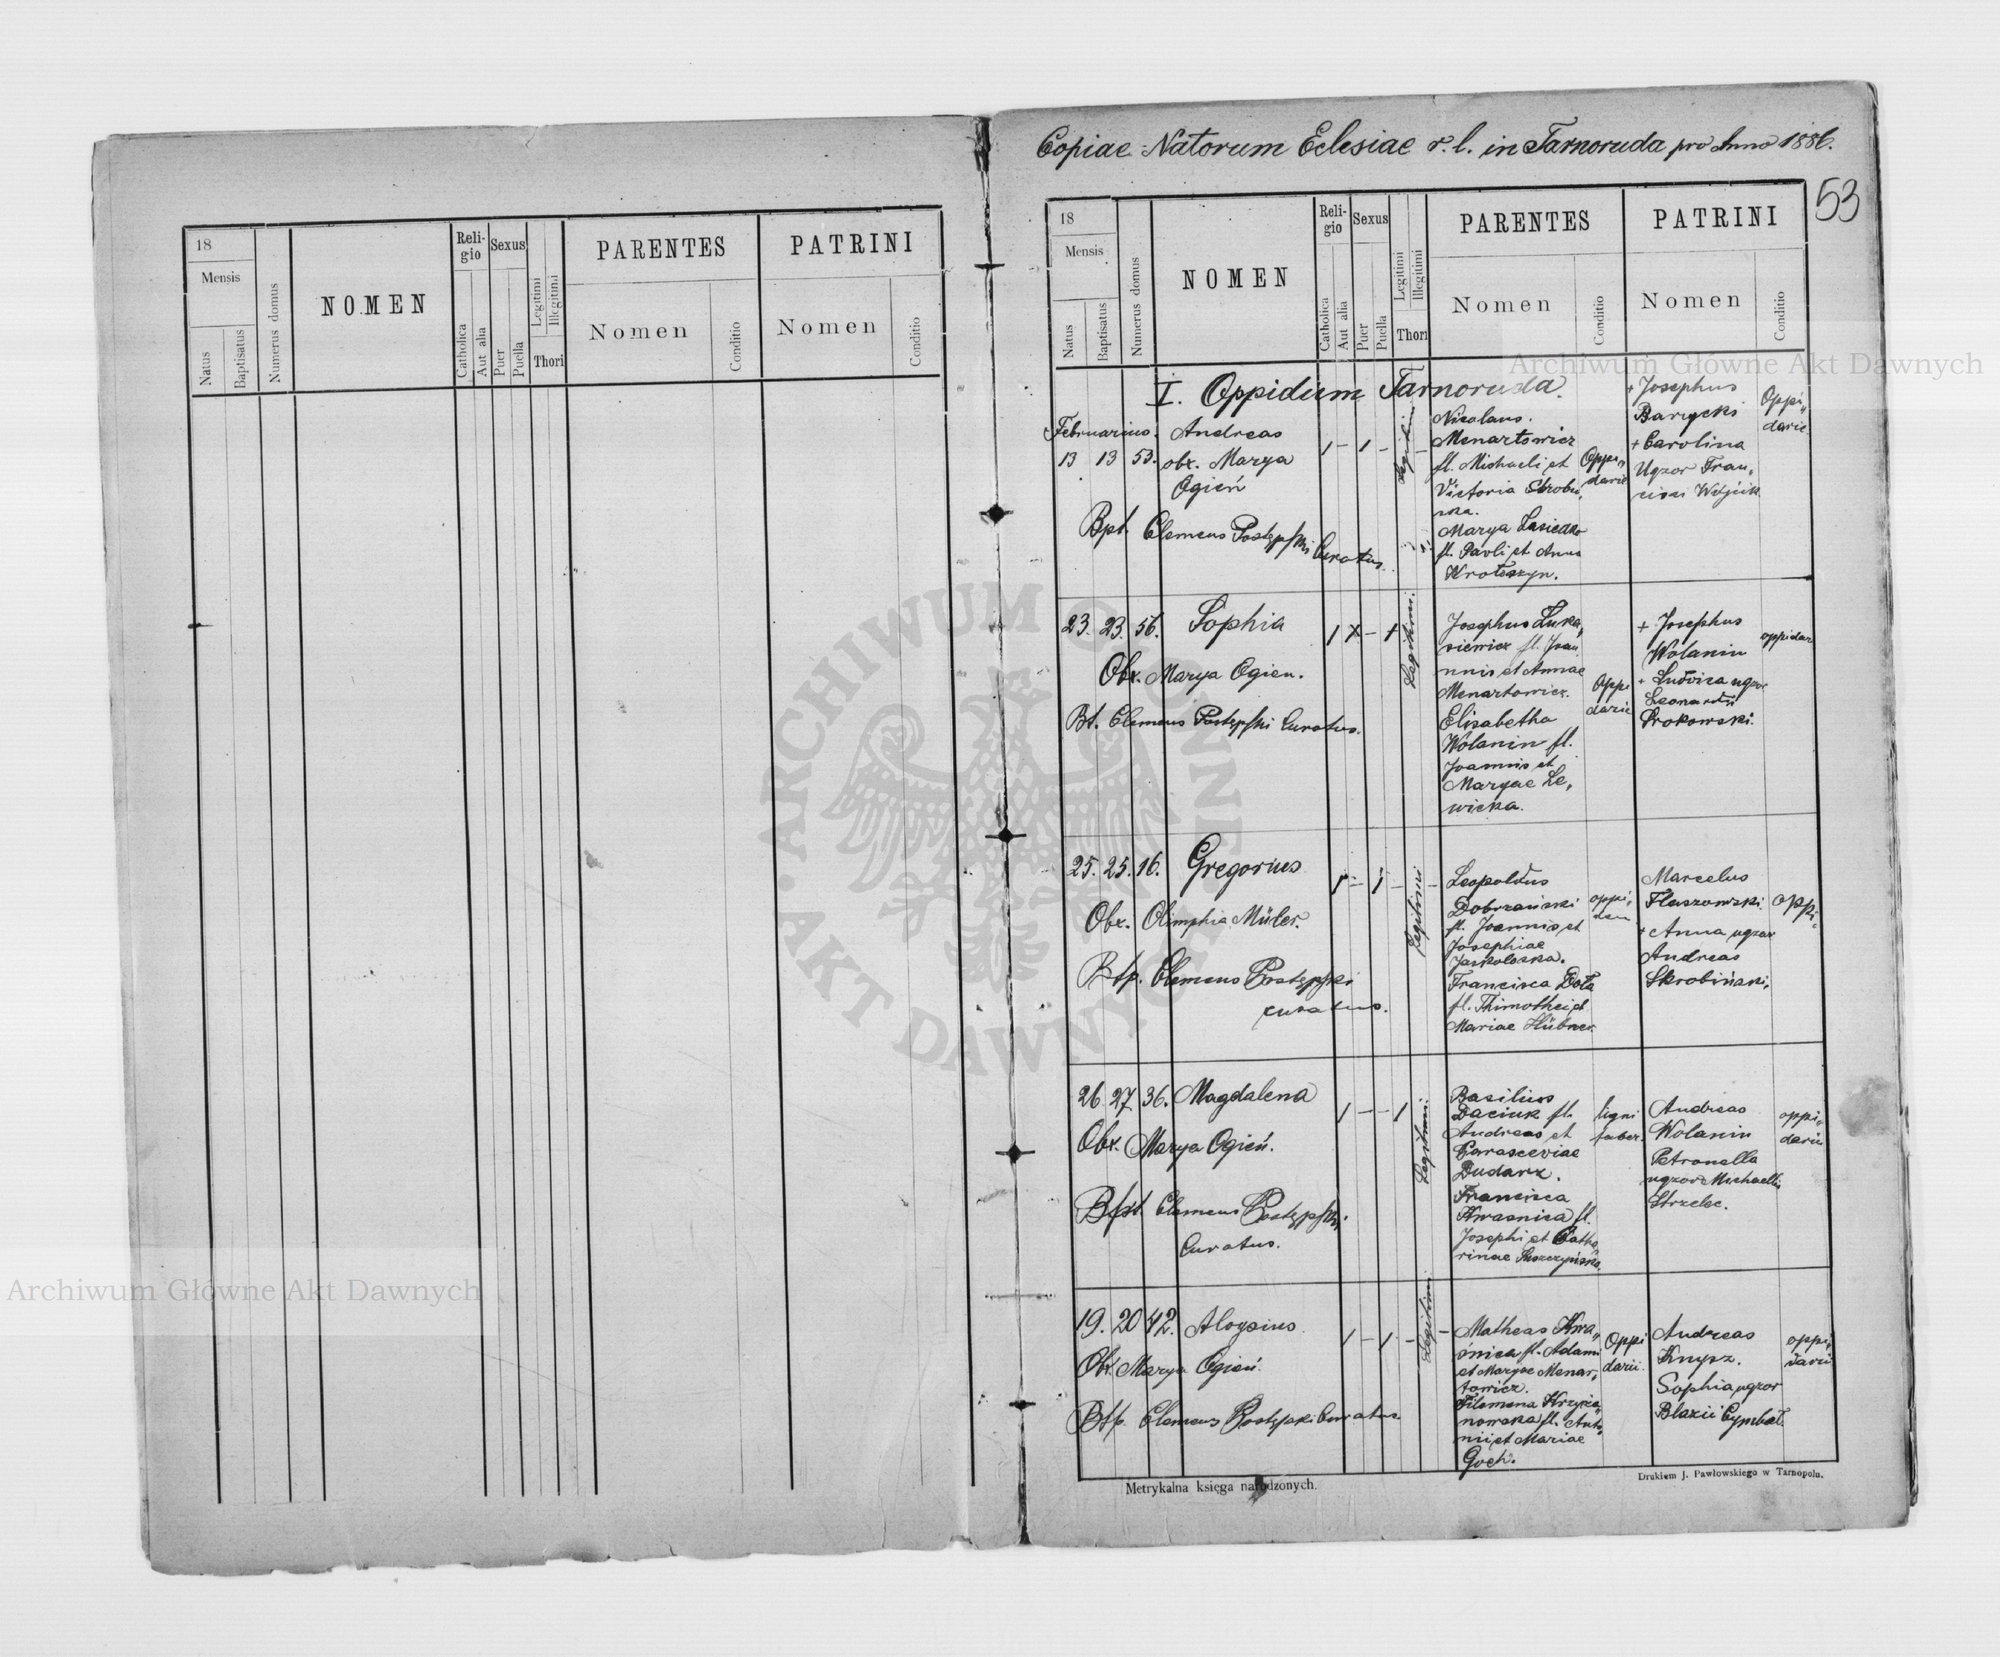 Copiae Natorum Eclesiae r. l. in Tarnoruda pro Anno 1886.
53
18
Mensis
Natus
Baptisatus
Numerus domus
NOMEN
Religio
Catholica
Aut alia
Sexus
Puer
Puella
Legitimi
Illegitimi
Thori
PARENTES
Nomen
Conditio
PATRINI
Nomen
Conditio
18
Mensis
Natus
Baptisatus
Numerus domus
NOMEN
Reli-
gio
Catholica
Aut alia
Sexus
Puer
Puella
Legitimi
Illegitimi
Thori
PARENTES
Nomen
Conditio
PATRINI
Nomen
Conditio
I. Oppidum Tarnoruda.
Februarius.
13 13 53.
Andreas
obx. Marya
Ogień
Bpt. Clemens Postępski Curatus.
1 - 1 -
Legitimi
Nicolaus
Menartowicz
fl. Michaeli et
Victoria
Marya
fl. Pavli et Anna
Oppi„
darii
+ Josephus
Barycki
+ Carolina
Uxzor Fran„
cisci Wójcik
Oppi„
darii
23. 23. 56. Sophia
Obx. Marya Ogien.
Bt. Clemens Postępski Curatus.
Legitimi.
Josephus Luka„
siewicz fl. Joan„
nnis et Annae
Menartowicz.
Elisabetha
Wolanin fl.
Joannis et
Maryae Le„
wicka.
Oppi
darii
+ Josephus
Wolanin
+ Ludvica ugzor
Leonardii
Prokowski.
oppidar
25. 25. 16. Gregorius
Obx. Olimphia Müler.
Btp. Clemens Postępski
curatus.
Legitimi
Leopoldus
Dobrzański
fl. Joannis et
Josephiae
Francisca Dota
fl. Thimothei et
Mariae Hübner
oppi„
Marcelus
Flaszowski
+ Anna ugzor
Andreas
Skrobiński.
oppi„
26 27 36. Magdalena
Obx. Marya Ogień.
Bpt. Clemens Postępski
Curatus.
1 - - 1
Legitimi.
Basilius
Daciuk fl.
Andreas et
Parasceviae
Dudarz.
Francisca
Kwasnica fl.
Josephi et Catha„
rinae
ligni
faber.
Andreas
Wolanin
Petronella
ugzor Michaelis
Strzelec.
oppi„
darii
19. 20 42. Aloysius
Obx Marya Ogień.
Btp. Clemens Postępski Curatus.
1 - 1 - -
Legitimi
Matheas Kwa„
śnica fl. Adami
et Maryae Menar„
towicz.
Filomena Krzyża„
nowska fl. Anto„
nii et Mariae
Goch.
Oppi
darii.
Andreas
Knysz.
Sophia ugzor
Blazii Cymbal.
oppi„
darii
Metrykalna księga narodzonych.
Drukiem J. Pawłowskiego w Tarnopolu.
Archiwum Główne Akt Dawnych
Archiwum Główne Akt Dawnych
ARCHIWUM GŁÓWNE AKT DAWNYCH